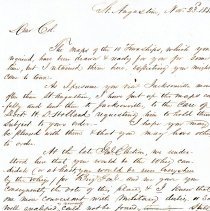 St. Augustine, Nov. 23d 18
Dear Col.
The maps of the 10 Townships, which you
required, have been drawn & ready for you for some
time, but I retained them here, expecting you might
come to town.
As I presume you visit Jacksonville more
often than St Augustine, I have put up the maps
fully and sent them to Jacksonville, to the care of
H. D. Holland, requesting him to hold them
subject to your order. I hope you may
be pleased with them & that you may have
to order.
At the late Election, we under-
stood here that you would be the Whig can-
didate (or at least you would be run
by the Whigs for
consequently the vote of this place, & I knew that
one more conversant with duties, or so
well qualified could not be found